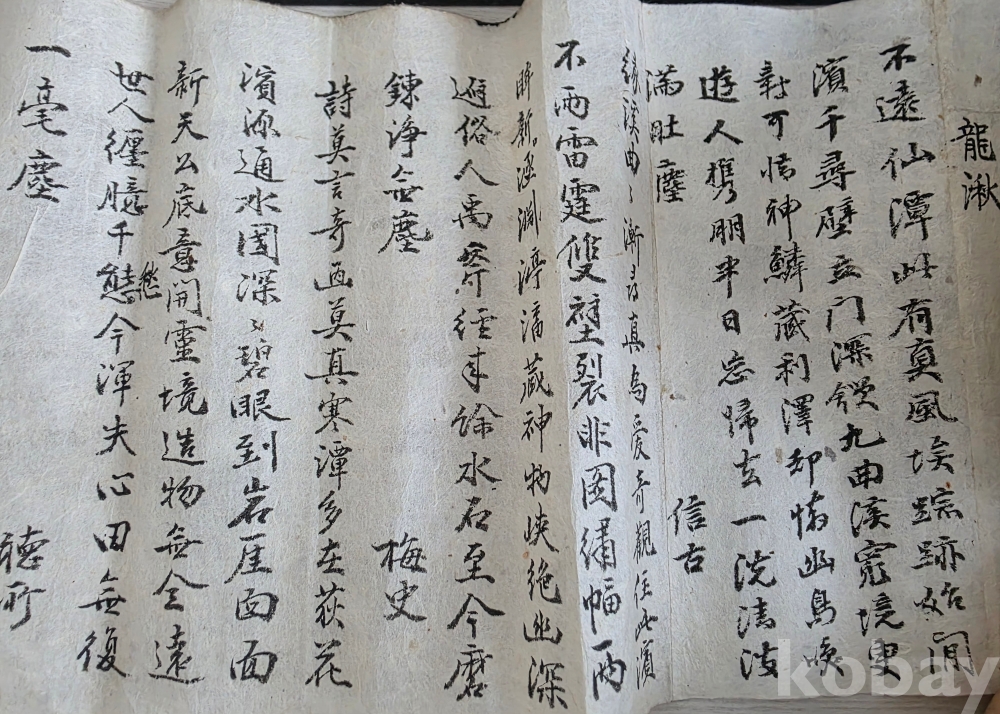 龍湫
不遠仙潭此有真風埃踪跡始聞
濱千尋壁立門深鎖九曲溪窮境更
新可惜神鱗藏利澤却憐幽鳥喚
遊人携朋半日忘歸去一洗淸波
滿肚塵 信古
緣溪曲〻漸尋真為愛奇觀住此濱
不雨雷霆雙壁裂非図繡幅兩
眸新泓渊渟滀藏神物峽絶幽深
避俗人禹斧經年餘水石至今磨
鍊淨無塵 梅史
詩莫言奇画莫真寒潭多在荻花
濱源通水国深〻碧眼到岩厓面面
新天公底意開靈境造物無全遠
世人纏臆千態愁今渾失心田無復
一毫塵 聴所
kobay